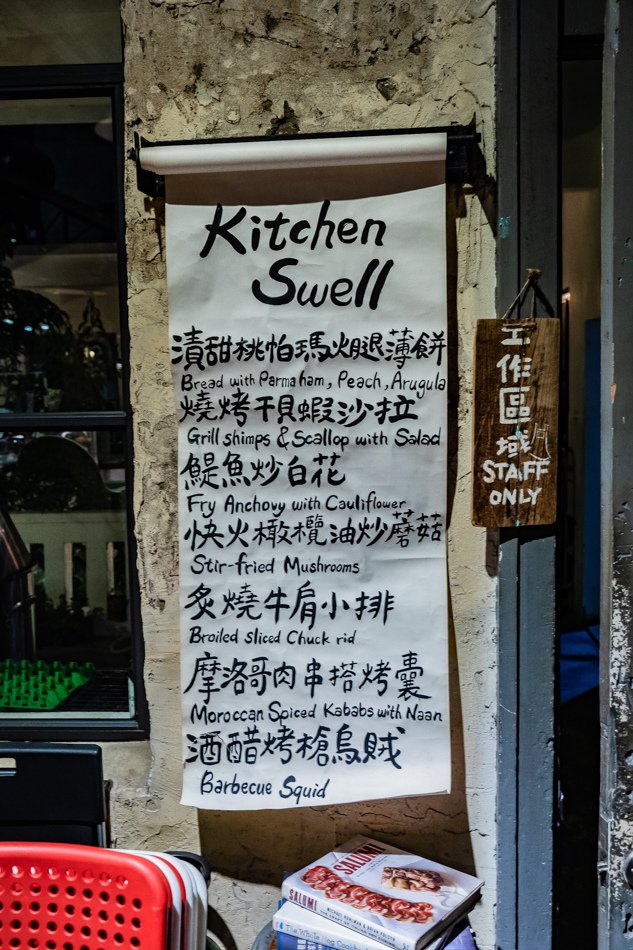 Kitchen
Swell
漬甜桃帕瑪火腿薄餅
Bread with Parma ham, Peach, Arugula
燒烤干貝蝦沙拉
Grill shimps & Scallop with Salad
鯷魚炒白花
Fry Anchovy with Cauliflower
快火橄欖油炒蘑菇
Stir-fried Mushrooms
炙燒牛肩小排
Broiled sliced Chuck rid
摩洛哥肉串搭烤囊
Moroccan Spiced Kababs with Naan
酒醋烤槍烏賊
Barbecue Squid
工作區域
STAFF
ONLY
SALUMI
SALUMI
MICHAEL RUHLMAN & BRIAN POLCYN
The Whole